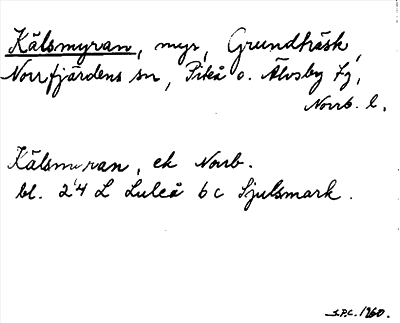 Kälsmyran, myr, Grundträsk,
Norrfjärdens sn, Piteå o. Älvsby tg,
Norrb. l.
Kälsmyran, ek Norrb.
bl. 24 L Luleå 6 c Sjulsmark.
1960.